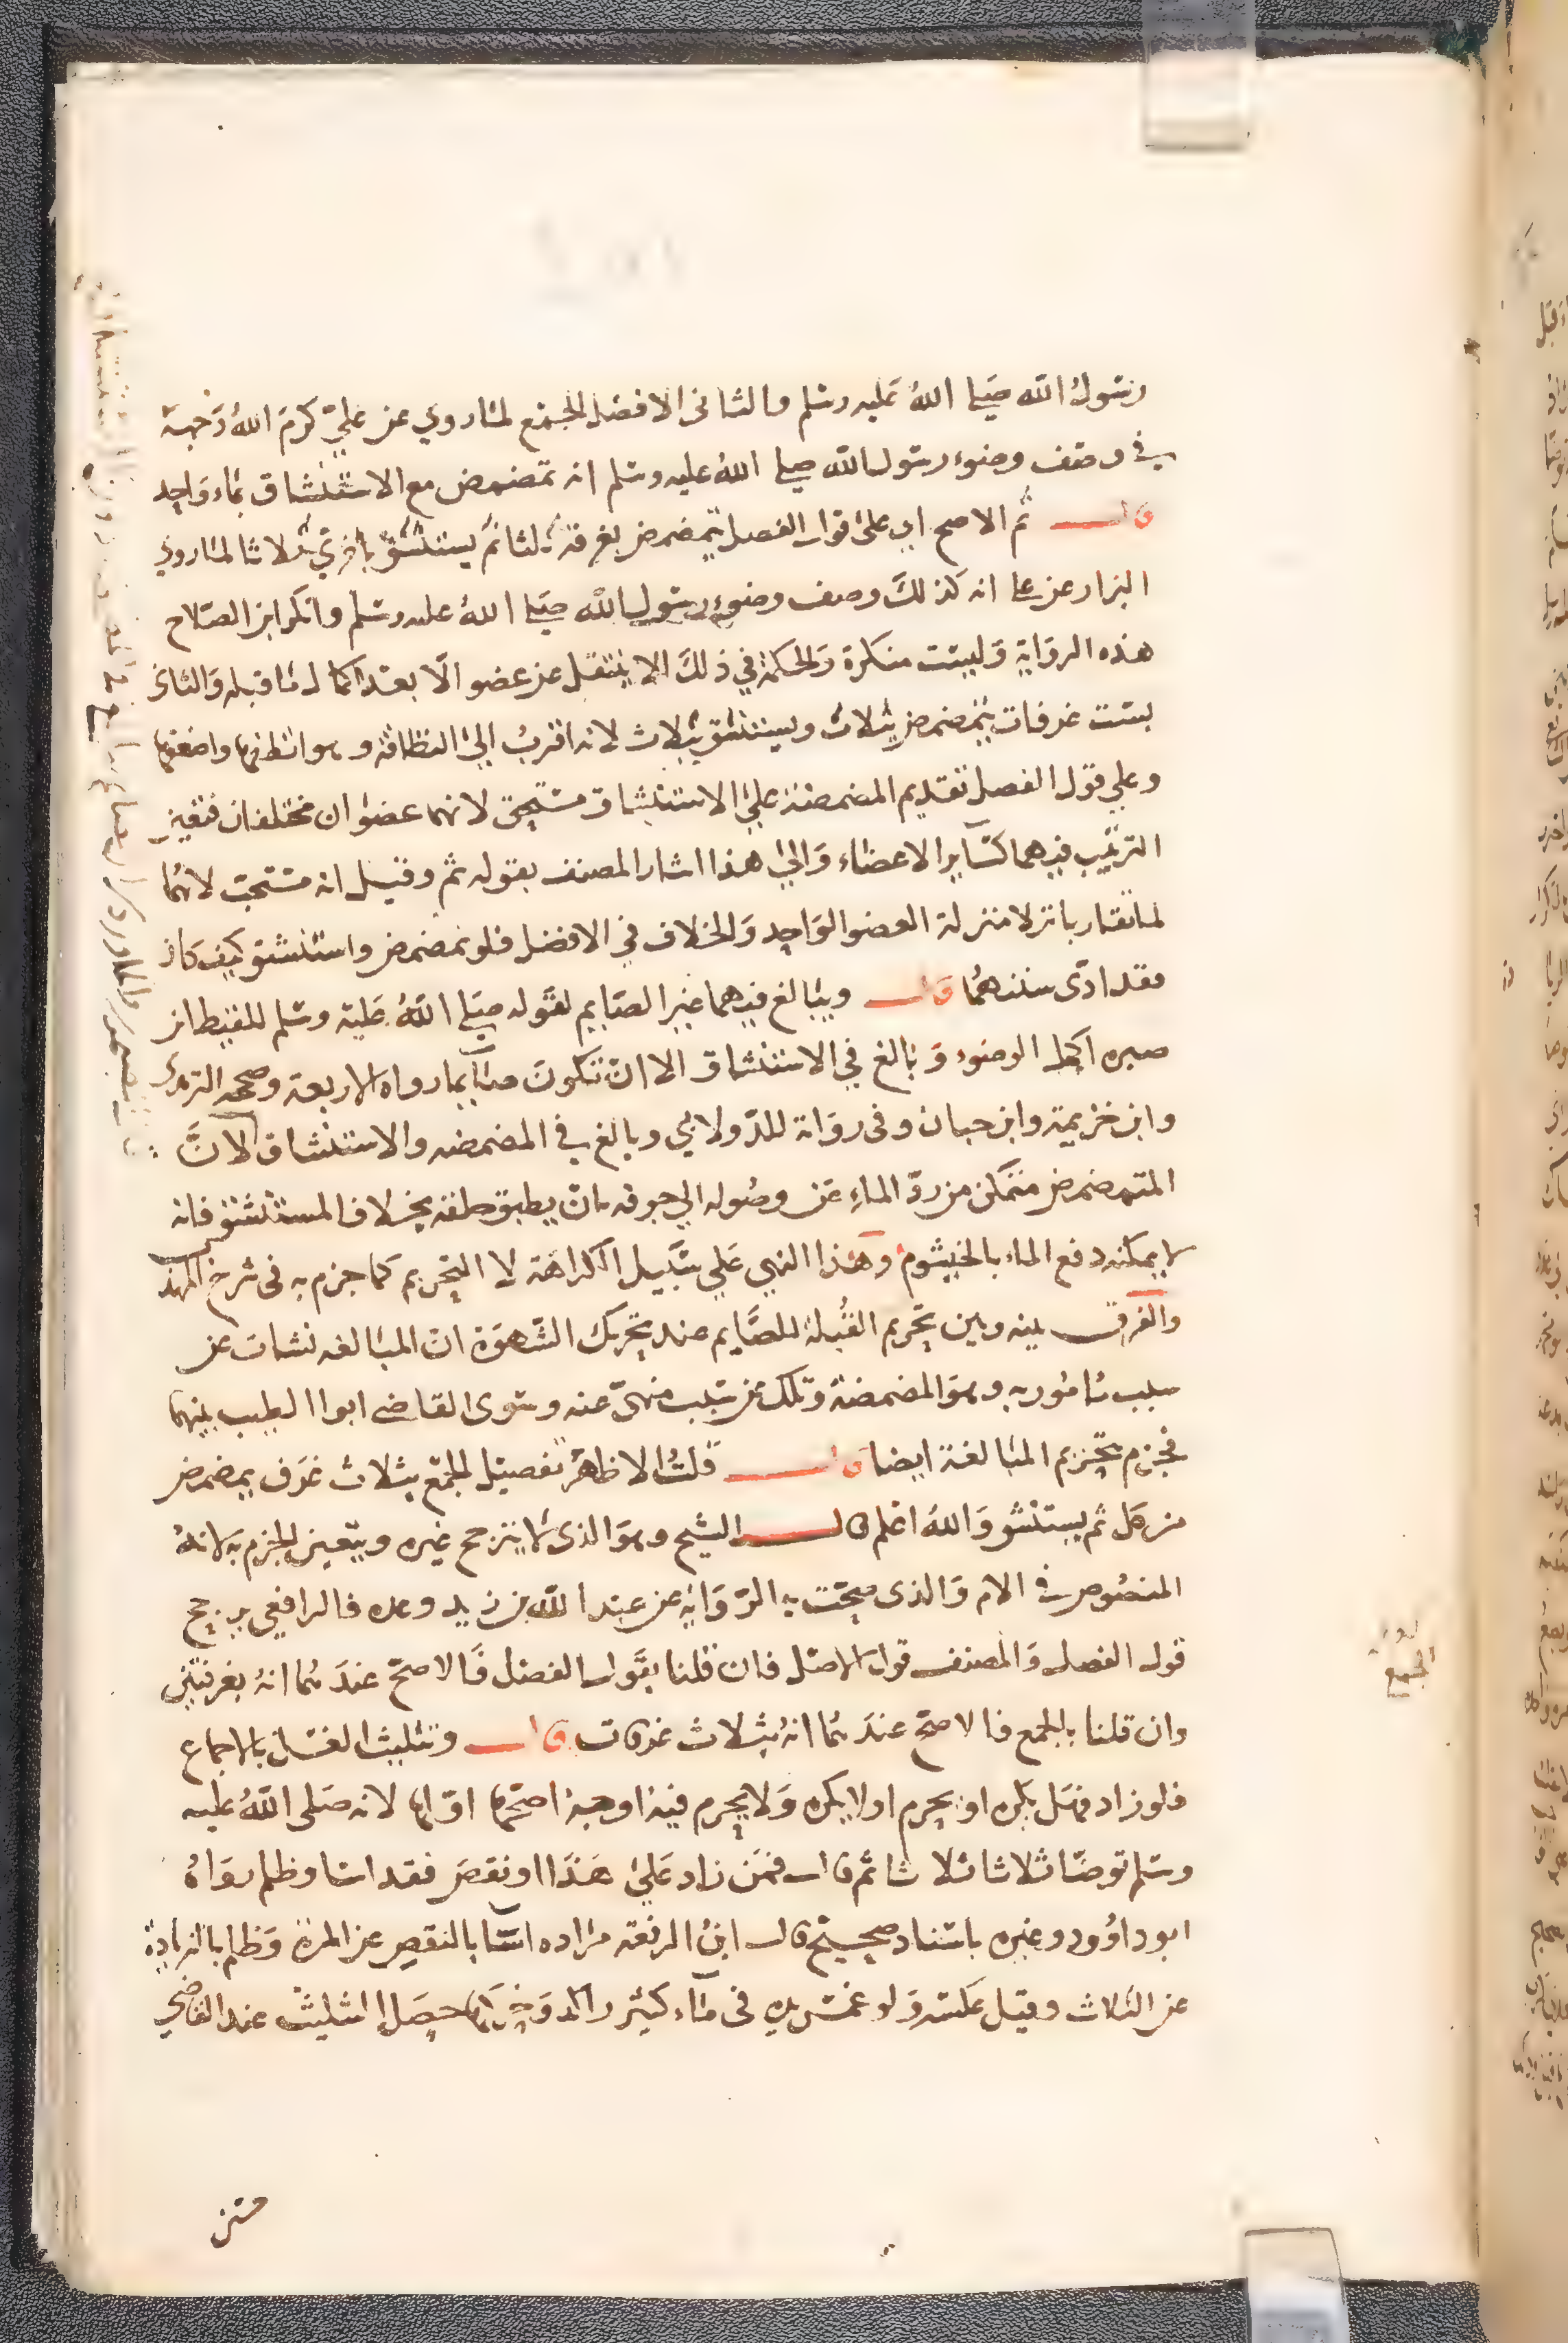 رسول الله صلى الله عليه وسلم والثاني الافضل الجمع لما روي عن علي كرم الله وجهه
في وصف وضوء رسول الله صلى الله عليه وسلم انه تمضمض مع الاستنشاق بماء واحد
قال ثم الاصح اي على قول الفصل يتمضمض بغرفة ثلثا ثم يستنشق باخرى ثلاثا لما روي
البزار عن علي انه كذلك وصف وضوء رسول الله صلى الله عليه وسلم وانكر ابن الصلاح
هذه الرواية وليست منكرة والحكمة في ذلك الا ينتقل عن عضو الا بعد اكمال ما قبله والثاني
بست غرفات يتمضمض بثلاث ويستنشق بثلاث لانه اقرب الى النظافة وهو انظفها واضعفها
وعلى قول الفصل تقديم المضمضة على الاستنشاق مستحق لانهما عضوان مختلفان فتعين
الترتيب فيهما كساير الاعضاء والى هذا اشار المصنف بقوله ثم وقيل انه مستحب لانهما
لما تقاربا نزلا منزلة العضو الواحد والخلاف في الافضل فلو تمضمض واستنشق كيف كان
فقد ادى سنتهما قال ويبالغ فيهما غير الصايم لقوله صلى الله عليه وسلم للقيط ابن
صبره اكمل الوضوء وبالغ في الاستنشاق الا ان تكون صائما رواه الاربعة وصححه الترمذي
وابن خزيمة وابن حبان وفي رواية للدولابي وبالغ في المضمضه والاستنشاق لان
المتمضمض متمكن من رد الماء عن وصوله الى جوفه بان يطبق حلقه بخلاف المستنشق فانه
لا يمكنه دفع الماء بالخيشوم وهذا النهي على سبيل الكراهة لا التحريم كما جزم به في شرح المهذب
والفرق بينه وبين تحريم القبلة للصايم عند تحريك الشهوة ان المبالغه نشات عن
سبب مامور به وهو المضمضة وتلك عن سبب منهي عنه وسوى القاضي ابو الطيب بينهما
فجزم بتحريم المبالغة ايضا قال قلت الاظهر تفضيل الجمع بثلاث غرف يمضمض
من كل ثم يستنشق والله اعلم قال الشيخ وهو الذي لا يترجح غيره ويتعين الجزم به لانه
المنصوص في الام والذي صحت به الرواية عن عبد الله بن زيد وغيره فالرافعي يرجح
قول الفصل والمصنف قول الاصل فان قلنا بقول الفصل فالاصح عندهما انه بغرفتين
وان قلنا بالجمع فالاصح عندهما انه بثلاث غرفات قال وتثليث الغسل بالاجماع
فلو زاد فهل يكره او يحرم او لا يكره ولا يحرم فيه اوجه اصحها اولها لانه صلى الله عليه
وسلم توضا ثلاثا ثلاثا ثم قال فمن زاد على هذا او نقص فقد اسا وظلم رواه
ابو داوود وغيره باسناد صحيح قال ابن الرفعة مراده اسا بالنقص عن المرة وظلم بالزيادة
عن الثلاث وقيل عكسه ولو غمس يده في ماء كثير راكد وحركها حصل التثليث عند القاضي
الجمع